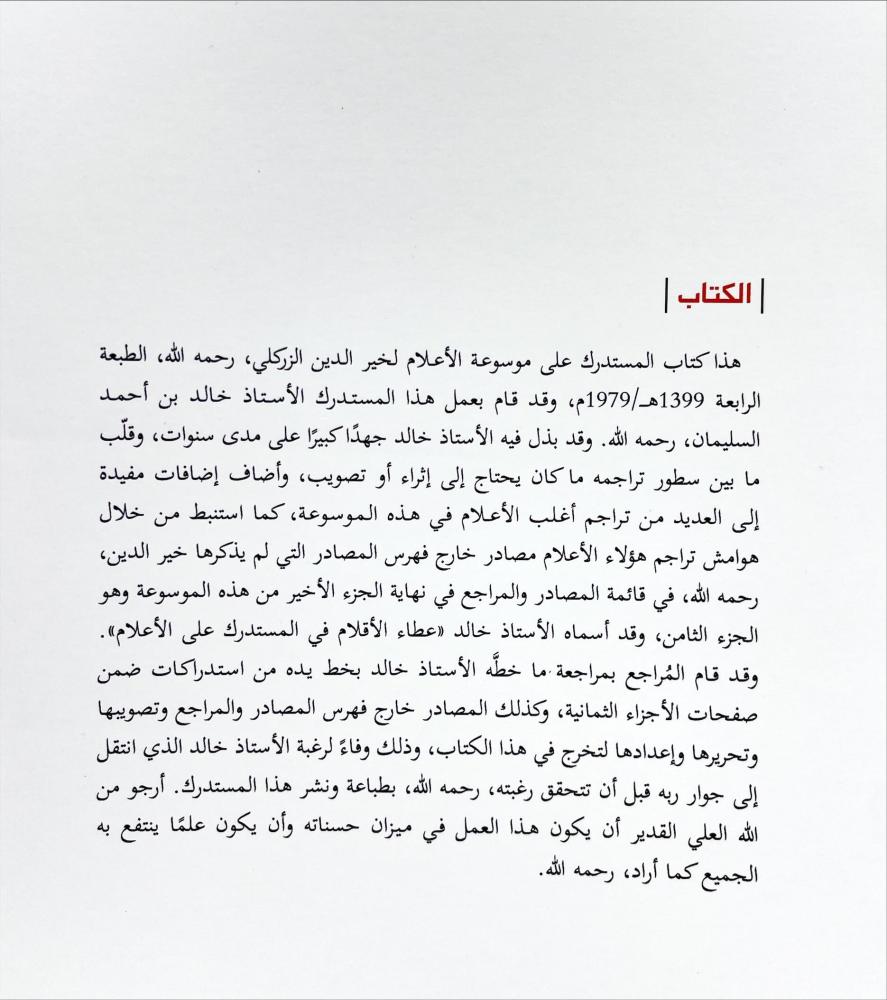 | الكتاب |
هذا كتاب المستدرك على موسوعة الأعلام لخير الدين الزركلي، رحمه الله، الطبعة
الرابعة 1399هـ/1979م، وقد قام بعمل هذا المستدرك الأستاذ خالد بن أحمد
السليمان، رحمه الله. وقد بذل فيه الأستاذ خالد جهدًا كبيرًا على مدى سنوات، وقلّب
ما بين سطور تراجمه ما كان يحتاج إلى إثراء أو تصويب، وأضاف إضافات مفيدة
إلى العديد من تراجم أغلب الأعلام في هذه الموسوعة، كما استنبط من خلال
هوامش تراجم هؤلاء الأعلام مصادر خارج فهرس المصادر التي لم يذكرها خير الدين،
رحمه الله، في قائمة المصادر والمراجع في نهاية الجزء الأخير من هذه الموسوعة وهو
الجزء الثامن، وقد أسماه الأستاذ خالد «عطاء الأقلام في المستدرك على الأعلام».
وقد قام المُراجع بمراجعة ما خطَّه الأستاذ خالد بخط يده من استدراكات ضمن
صفحات الأجزاء الثمانية، وكذلك المصادر خارج فهرس المصادر والمراجع وتصويبها
وتحريرها وإعدادها لتخرج في هذا الكتاب، وذلك وفاءً لرغبة الأستاذ خالد الذي انتقل
إلى جوار ربه قبل أن تتحقق رغبته، رحمه الله، بطباعة ونشر هذا المستدرك. أرجو من
الله العلي القدير أن يكون هذا العمل في ميزان حسناته وأن يكون علمًا ينتفع به
الجميع كما أراد، رحمه الله.